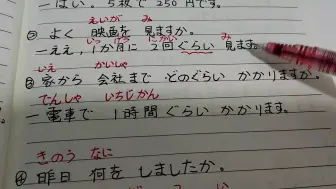 ーはい。5枚で 250円です。
えいが み
② よく 映画を 見ますか。
いっ げつ にかい み
ーええ、1か月に 2回ぐらい 見ます。
いえ かいしゃ
③ 家から 会社まで どのぐらい かかりますか。
でんしゃ いちじかん
ー電車で 1時間ぐらい かかります。
きのう なに
④ 昨日 何を しましたか。